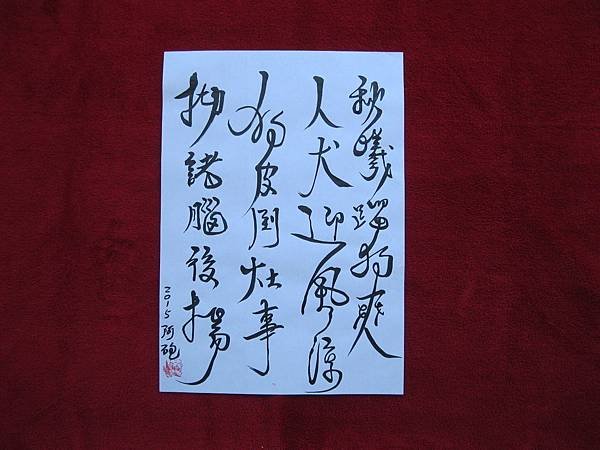 秋曦蹓狗爽
人犬迎風涼
人狗皮倒灶事
拋諸腦後揚
2015 阿砲